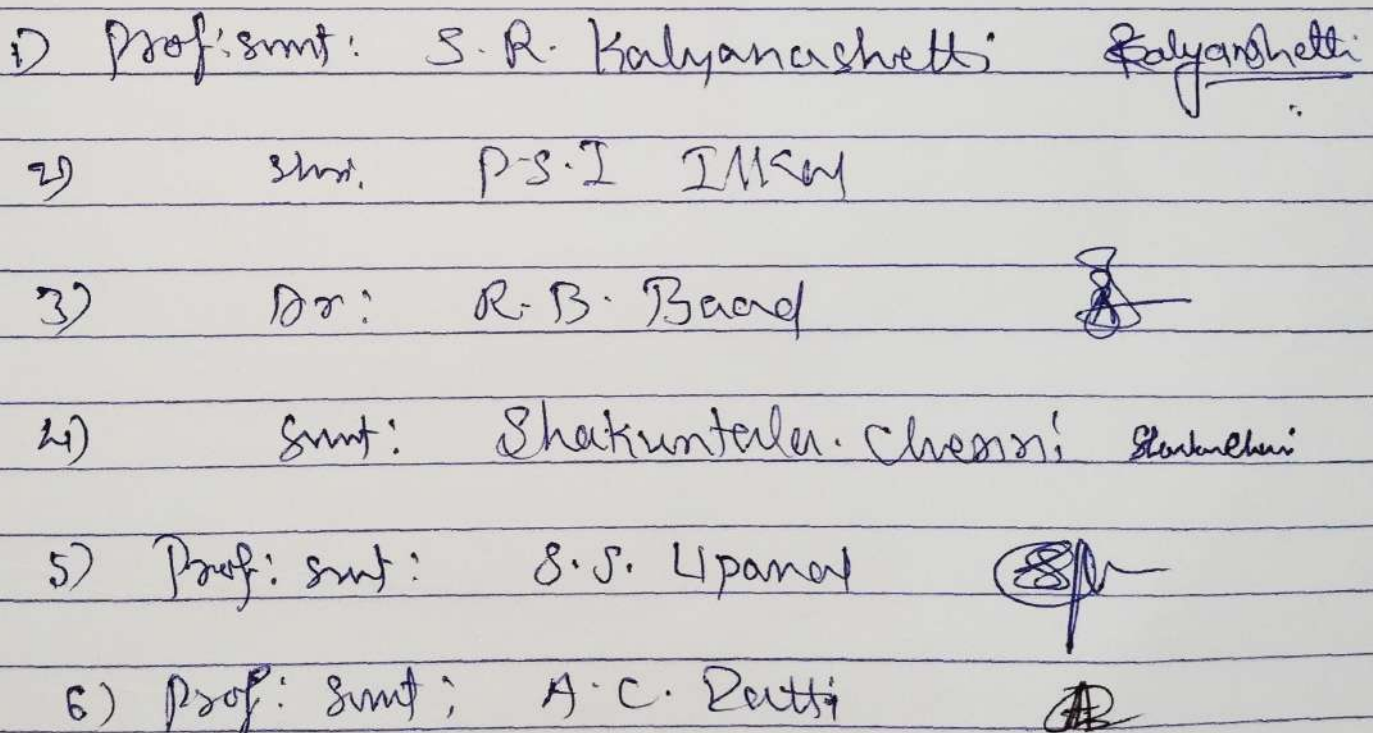 1) Prof: smt: S. R. Kalyanashetti Kalyanshetti
2) Shri. P.S.I
3) Dr: R. B. Baad
4) Smt: Shakuntala. Chenni
5) Prof: smt: S. S. Upanal
6) Prof: Smt: A. C. Ratti